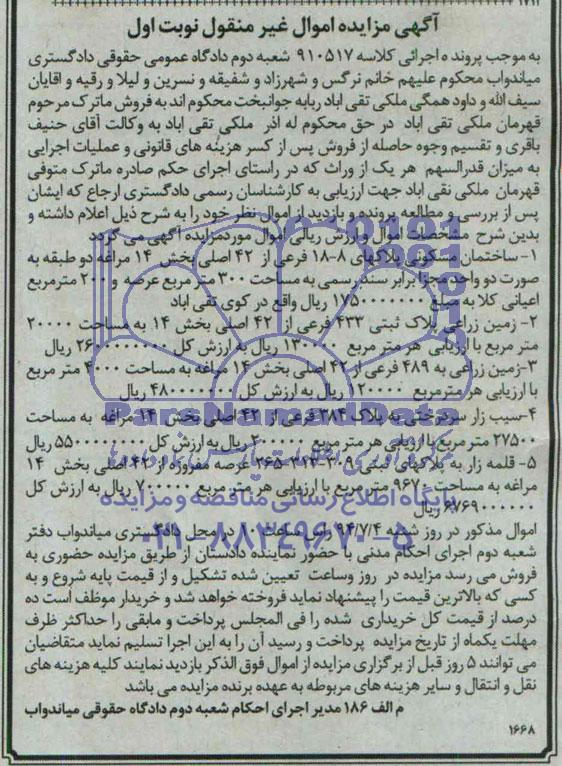 آگهی مزایده اموال غیر منقول نوبت اول
به موجب پرونده اجرائی کلاسه ۹۱۰۵۱۷ شعبه دوم دادگاه عمومی حقوقی دادگستری
میاندواب محکوم علیهم خانم نرگس و شهرزاد و شفیقه و نسرین و لیلا و رقیه و اقایان
سیف الله و داود همگی ملکی تقی اباد ربابه جوانبخت محکوم اند به فروش ماترک مرحوم
قهرمان ملکی تقی اباد در حق محکوم له اذر ملکی تقی اباد به وکالت آقای حنیف
باقری و تقسیم وجوه حاصله از فروش پس از کسر هزینه های قانونی و عملیات اجرایی
به میزان قدرالسهم هر یک از وراث که در راستای اجرای حکم صادره ماترک متوفی
قهرمان ملکی نقی اباد جهت ارزیابی به کارشناسان رسمی دادگستری ارجاع که ایشان
پس از بررسی و مطالعه پرونده و بازدید از اموال نظر خود را به شرح ذیل اعلام داشته و
بدین شرح مشخصات اموال و ارزش ریالی اموال موردمزایده آگهی می گردد
۱- ساختمان مسکونی پلاکهای ۸-۱۸ فرعی از ۴۲ اصلی بخش ۱۴ مراغه دو طبقه به
صورت دو واحد مجزا برابر سند رسمی به مساحت ۳۰۰ متر مربع عرصه و ۲۰۰ مترمربع
اعیانی کلا به مبلغ ۱۷۵۰۰۰۰۰۰۰ ریال واقع در کوی تقی اباد
۲- زمین زراعی پلاک ثبتی ۴۳۳ فرعی از ۴۲ اصلی بخش ۱۴ به مساحت ۲۰۰۰۰
متر مربع با ارزیابی هر متر مربع ۱۳۰۰۰۰ ریال به ارزش کل ۲۶۰۰۰۰۰۰۰۰ ریال
۳-زمین زراعی به ۴۸۹ فرعی از ۴۲ اصلی بخش ۱۴ مراغه به مساحت ۴۰۰۰ متر مربع
با ارزیابی هر مترمربع ۱۲۰۰۰۰ ریال به ارزش کل ۴۸۰۰۰۰۰۰۰ ریال
۴-سیب زار سردرختی به پلاک ۳۸۴ فرعی از ۴۲ اصلی بخش ۱۴ مراغه به مساحت
۲۷۵۰۰ متر مربع با ارزیابی هر متر مربع ۲۰۰۰۰۰ ریال به ارزش کل ۵۵۰۰۰۰۰۰۰۰ ریال
۵- قلمه زار به پلاکهای ثبتی ۳۰۹-۳۲۳-۲۶۵ عرصه مفروز از ۴۲ اصلی بخش ۱۴
مراغه به مساحت ۹۶۷۰ متر مربع با ارزیابی هر متر مربع ۷۰۰۰۰۰ ریال به ارزش کل
۶۷۶۹۰۰۰۰۰۰ ریال
اموال مذکور در روز شنبه ۹۴/۷/۴ راس ساعت در محل دادگستری میاندواب دفتر
شعبه دوم اجرای احکام مدنی با حضور نماینده دادستان از طریق مزایده حضوری به
فروش می رسد مزایده در روز وساعت تعیین شده تشکیل و از قیمت پایه شروع و به
کسی که بالاترین قیمت را پیشنهاد نماید فروخته خواهد شد و خریدار موظف است ده
درصد از قیمت کل خریداری شده را فی المجلس پرداخت و مابقی را حداکثر ظرف
مهلت یکماه از تاریخ مزایده پرداخت و رسید آن را به این اجرا تسلیم نماید متقاضیان
می توانند ۵ روز قبل از برگزاری مزایده از اموال فوق الذکر بازدید نمایند کلیه هزینه های
نقل و انتقال و سایر هزینه های مربوطه به عهده برنده مزایده می باشد
م الف ۱۸۶ مدیر اجرای احکام شعبه دوم دادگاه حقوقی میاندواب
۱۶۶۸
ParsNamadData
پایگاه اطلاع رسانی مناقصه و مزایده
۰۲۱-۸۸۳۴۹۶۷۰-۵